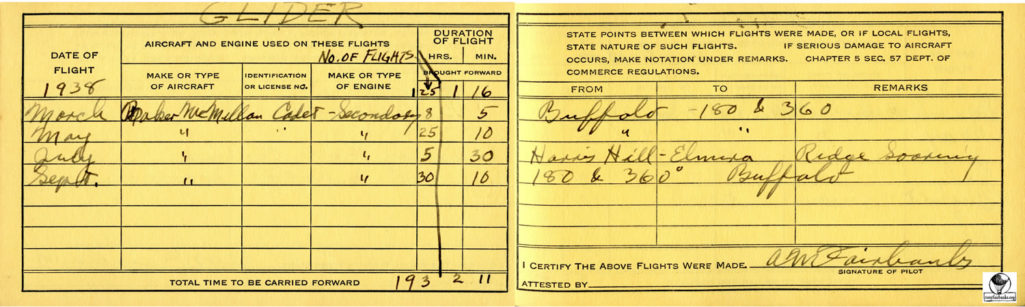 GLIDER
DATE OF FLIGHT
1938
AIRCRAFT AND ENGINE USED ON THESE FLIGHTS
No. OF FLIGHTS
DURATION OF FLIGHT
HRS. MIN.
MAKE OR TYPE OF AIRCRAFT
IDENTIFICATION OR LICENSE NO.
MAKE OR TYPE OF ENGINE
BROUGHT FORWARD
125 1 16
March Baker McMillan Cadet - Secondary 8 5
May " " " 25 10
July " " 5 30
Sept. " " 30 10
TOTAL TIME TO BE CARRIED FORWARD 193 2 11
STATE POINTS BETWEEN WHICH FLIGHTS WERE MADE, OR IF LOCAL FLIGHTS,
STATE NATURE OF SUCH FLIGHTS. IF SERIOUS DAMAGE TO AIRCRAFT
OCCURS, MAKE NOTATION UNDER REMARKS. CHAPTER 5 SEC. 57 DEPT. OF
COMMERCE REGULATIONS.
FROM TO REMARKS
Buffalo - 180 & 360
" "
Harris Hill - Elmira Ridge Soaring
180 & 360° Buffalo
I CERTIFY THE ABOVE FLIGHTS WERE MADE. AW Fairbanks
SIGNATURE OF PILOT
ATTESTED BY